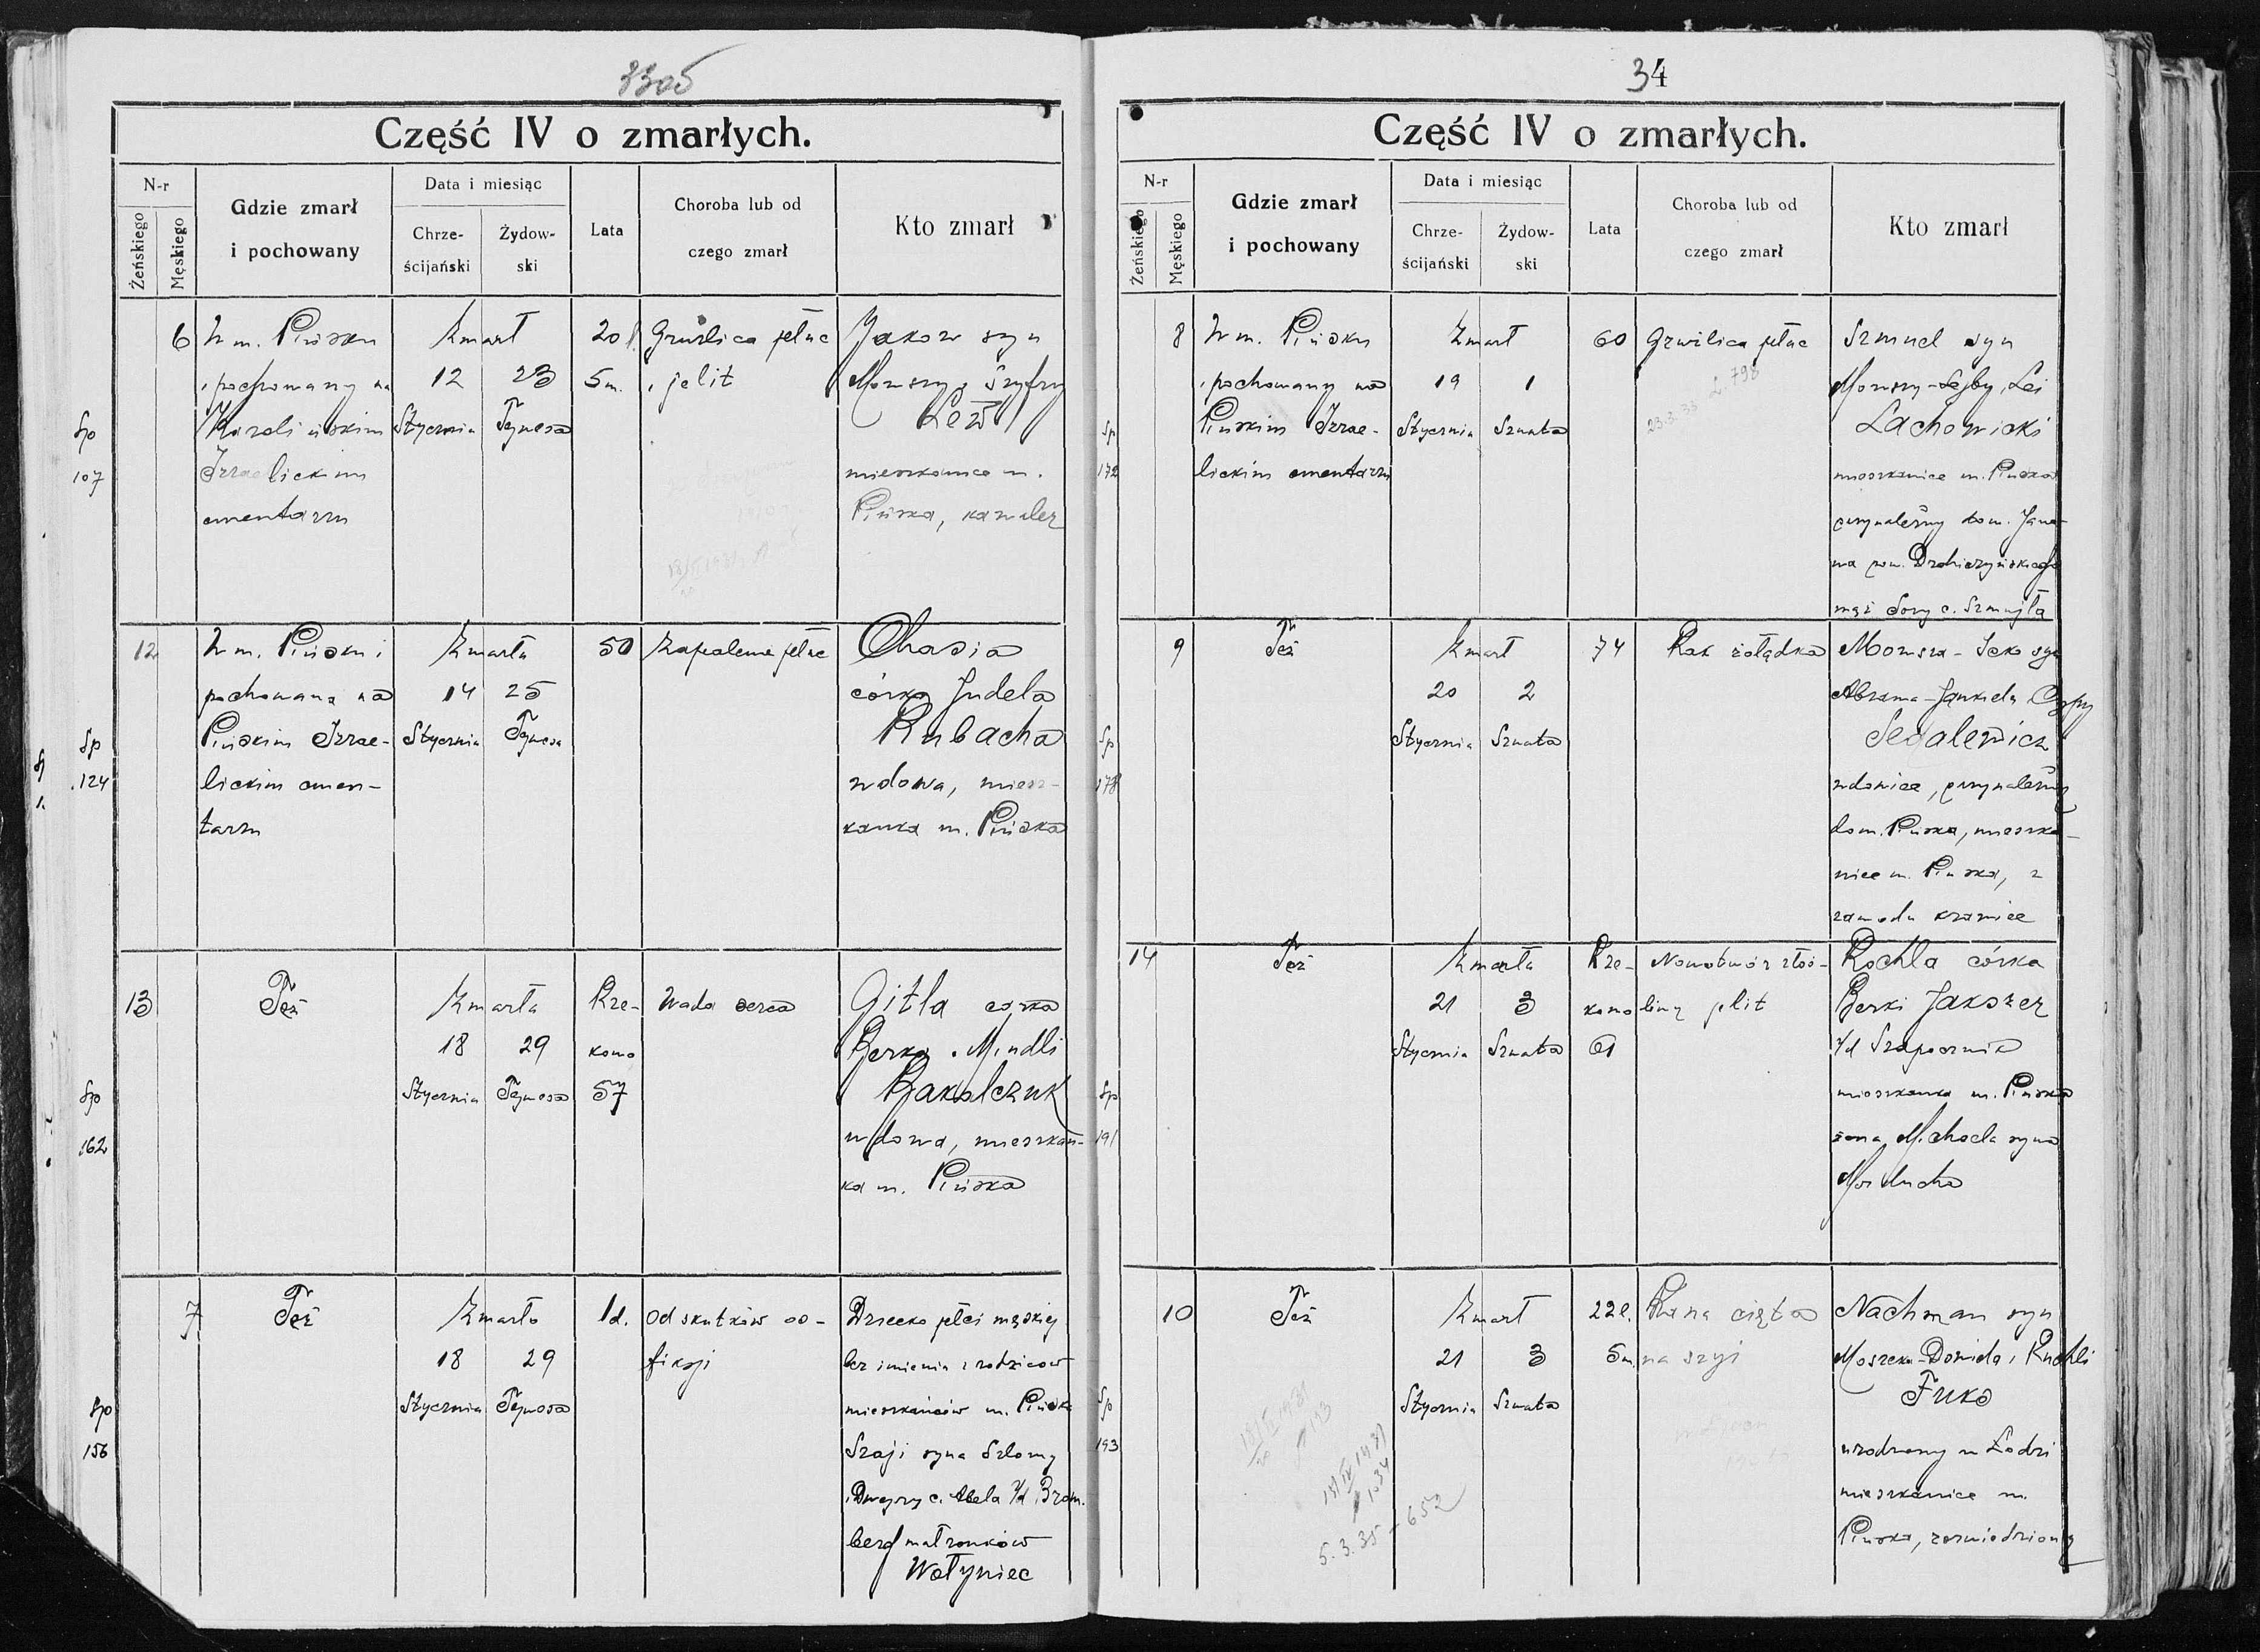 Część IV o zmarłych.
N-r
Żeńskiego
Męskiego
Gdzie zmarł
i pochowany
Data i miesiąc
Chrze-
ścijański
Żydow-
ski
Lata
Choroba lub od
czego zmarł
Kto zmarł
6
W m. Pińsku
i pochowany na
Karolińskim
Izraelickim
cmentarzu
Zmarł
12 23
Stycznia Tejwesa
20 l.
5 m.
Gruźlica płuc
i jelit
Jakow syn
Mowszy i Szyfry
Lew
mieszkaniec m.
Pińska, kawaler
Sp
107
12
W m. Pińsku i
pochowana na
Pińskim Izrae-
lickim cmen-
tarzu
Zmarła
14 25
Stycznia Tejwesa
50
Zapalenie płuc
Chasia
córka Judela
Rubacha
wdowa, miesz-
kanka m. Pińska
Sp
124
13
Też
Zmarła
18 29
Stycznia Tejwesa
Rze-
komo
57
Wada serca
Gitla córka
Berka i Mindli
Bakalczuk
wdowa, mieszkan-
ka m. Pińska
Sp
162
7
Też
Zmarło
18 29
Stycznia Tejwesa
1d.
Od skutków as-
fiksji
Dziecko płci męskiej
bez imienia z rodziców
mieszkańców m. Pińska
Szaji syna Szlomy
i Dwejry c. Abela z/d Brom-
berg małżonków
Wołyniec
Sp
156
34
Część IV o zmarłych.
N-r
Żeńskiego
Męskiego
Gdzie zmarł
i pochowany
Data i miesiąc
Chrze-
ścijański
Żydow-
ski
Lata
Choroba lub od
czego zmarł
Kto zmarł
8
W m. Pińsku
i pochowany na
Pińskim Izrae-
lickim cmentarzu
Zmarł
19 1
Stycznia Szwata
60
Gruźlica płuc
23.3.33 L. 798
Szmuel syn
Mowszy-Lejby i Lei
Lachowicki
mieszkaniec m. Pińska
przynależny do m. Jano-
wa pow. Drohiczyńskiego
mąż Sory c. Szmujła
Sp
172
9
Też
Zmarł
20 2
Stycznia Szwata
74
Rak żołądka
Mowsza-Icko syn
Abrama-Jankiela i Cypy
Segalewicz
wdowiec, przynależny
do m. Pińska, mieszka-
niec m. Pińska, z
zawodu krawiec
Sp
178
14
Też
Zmarła
21 3
Stycznia Szwata
Rze-
komo
61
Nowotwór złoś-
liwy jelit
Rochla córka
Berki Jakszer
z/d Szapocznik
mieszkanka m. Pińska
żona Michaela syna
Morducha
Sp
191
10
Też
Zmarł
21 3
Stycznia Szwata
22 l.
5 m.
Rana cięta
na szyi
Nachman syn
Moszka-Dawida i Ruchli
Fuks
urodzony w Łodzi
mieszkaniec m.
Pińska, rozwiedziony
Sp
193
5.3.35 - 652